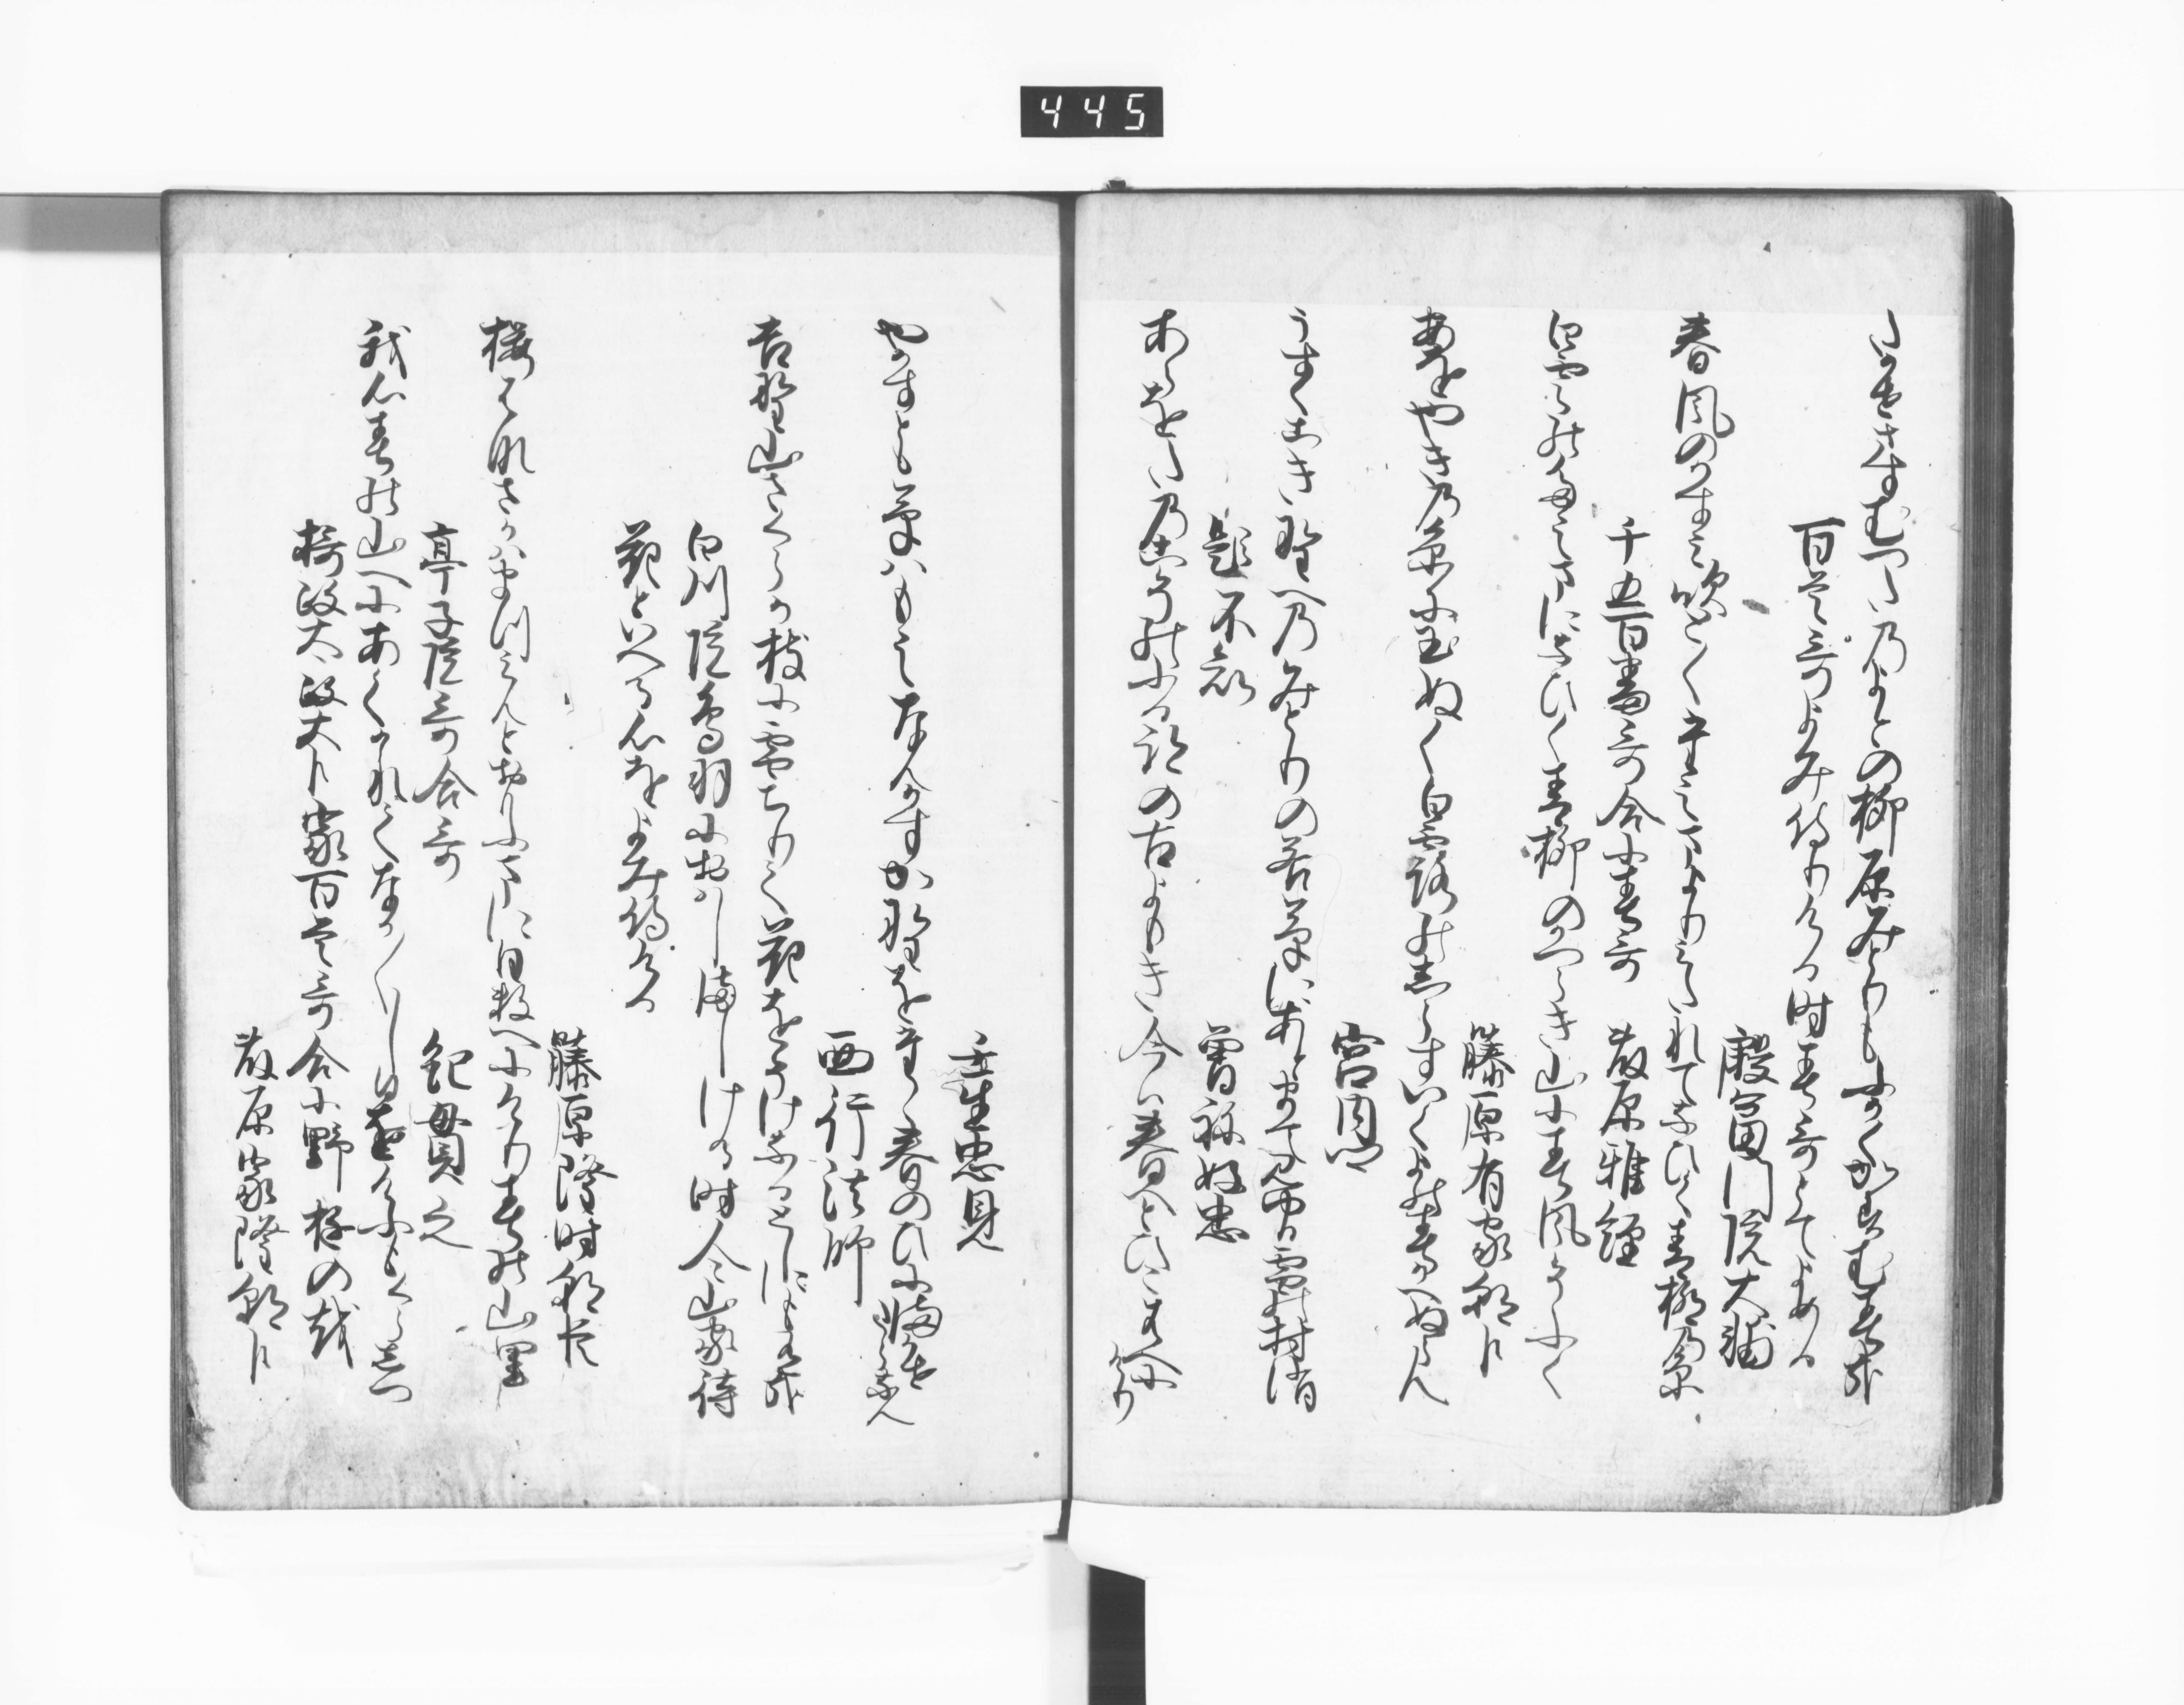 445
いなむしろ
百首哥よみ侍りける時春哥とてよめる
殷富門院大輔
春風のかすみ吹とくたえまよりみたれてなひく青柳の糸
千五百番哥合に春哥　藤原雅経
白雲のたえまになひく青柳のかつらき山に春風そふく
藤原有家朝臣
あをやきの糸に玉ぬく白露のしらすいくよの春かへぬらん
宮内卿
うすくこき野へのみとりの若草にあとまて見ゆる雪の村消
題不知　曽祢好忠
あらをたの去年のふる跡の古よもき今は春へとひこはへにけり
壬生忠見
やかすとも草はもえなんかすか野をたゝ春のひに任せたらなん
西行法師
吉野山さくらか枝に雪ちりて花をそけなるとしにも有哉
白川院鳥羽におはしましける時人々山家待
花といへる心をよみ侍ける
藤原隆時朝臣
桜花さかはまつみんとおもふまに日数へにけり春の山里
亭子院哥合哥　紀貫之
我心春の山へにあくかれてなか〳〵し日をけふもくらしつ
摂政太政大臣家百首哥合に野遊の哉
藤原家隆朝臣